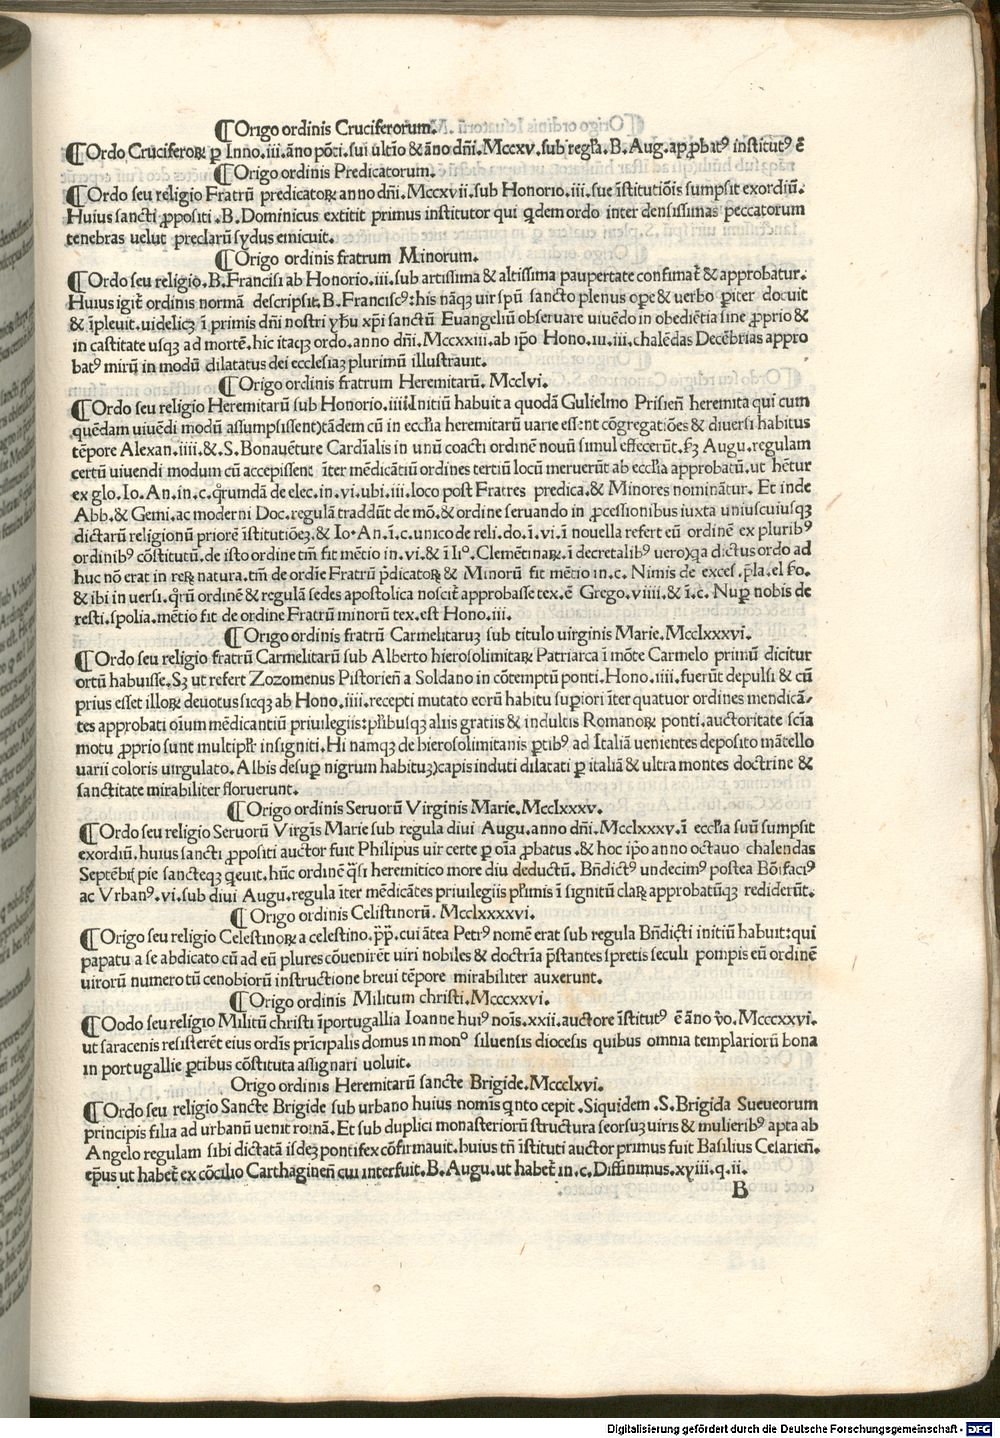 ¶ Origo ordinis Cruciferorum.
¶ Ordo Cruciferoꝝ ꝑ Inno.iii.āno pōti.sui ultīo & āno dn̄i.Mccxv.sub regl̄a.B.Aug.apꝓbatꝰ institutꝰ ē
¶ Origo ordinis Predicatorum.
¶ Ordo seu religio Fratrū predicatoꝝ anno dn̄i.Mccxvii.sub Honorio.iii.sue īstitutiōis sumpsit exordiū.
Huius sancti ꝓpositi.B.Dominicus extitit primus institutor qui qdem ordo inter densissimas peccatorum
tenebras uelut preclarū sydus emicuit.
¶ Origo ordinis fratrum Minorum.
¶ Ordo seu religio.B.Francisi ab Honorio.iii.sub artissima & altissima paupertate confirmat̄ & approbatur.
Huius igit̄ ordinis normā descripsit.B.Franciscꝰ:his nāqꝫ uir spū sancto plenus oꝑe & uerbo ꝑiter docuit
& īpleuit.uidelicꝫ ī primis dn̄i nostri yhu xp̄i sanctū Euangeliū obseruare uiuēdo in obediētia sine ꝓprio &
in castitate usqꝫ ad mortē.hic itaqꝫ ordo.anno dn̄i.Mccxxiii.ab ip̄o Hono.iii.iii.chalēdas Decēbrias appro
batꝰ mirū in modū dilatatus dei ecclesiaꝫ plurimū illustrauit.
¶ Origo ordinis fratrum Heremitarū. Mcclvi.
¶ Ordo seu religio Heremitarū sub Honorio.iiii.Initiū habuit a quodā Gulielmo Prisien̄ heremita qui cum
quēdam uiuēdi modū assumpsissent)tādem cū in eccl̄ia heremitarū uarie essent cōgregatiōes & diuersi habitus
tēpore Alexan.iiii.&.S.Bonauēture Cardīalis in unū coacti ordinē nouū simul effecerūt. Augu.regulam
certū uiuendi modum cū accepissent īter mēdicātiū ordines tertiū locū meruerūt ab eccl̄ia approbatū.ut hētur
ex glo.Io.An.in.c.qrumdā de elec.in.vi.ubi.iii.loco post Fratres predica.& Minores nominātur. Et inde
Abb.& Gemi.ac moderni Doc.regulā traddūt de mō.& ordine seruando in ꝓcessionibus iuxta uniuscuiusqꝫ
dictarū religionū priorē īstitutiōeꝫ.& Io.An.ī.c.unico de reli.do.ī.vi.ī nouella refert eū ordinē ex pluribꝰ
ordinibꝰ cōstitutū.de isto ordine tm̄ fit mētio in.vi.& ī Clemētinaꝝ.ī decretalibꝰ uero)qa dictus ordo ad
huc nō erat in reꝝ natura.tm̄ de ordīe Fratrū p̄dicatoꝝ & Minorū fit mētio in.c. Nimis de exces.
& ibi in uersi.qrū ordinē & regulā sedes apostolica noscit̄ approbasse tex.ē Grego.viiii.& ī.c. Nuꝑ nobis de
resti.spolia.mētio fit de ordine Fratrū minorū tex.est Hono.iii.
¶ Origo ordinis fratrū Carmelitaruꝫ sub titulo uirginis Marie.Mcclxxxvi.
¶ Ordo seu religio fratrū Carmelitarū sub Alberto hierosolimitaꝝ Patriarca ī mōte Carmelo primū dicitur
ortū habuisse.Sꝫ ut refert Zozomenus Pistorien̄ a Soldano in cōtemptū ponti.Hono.iiii.fuerūt depulsi & cū
prius esset illoꝝ deuotus)icqꝫ ab Hono.iiii.recepti mutato eorū habitu suꝑiori īter quatuor ordines mendicā-
tes approbati oīum mēdicantiū priuilegiis:pl̄ibusqꝫ aliis gratiis & indultis Romanoꝝ ponti.auctoritate scīa
motu ꝓprio sunt multipl̄r insigniti.Hi namqꝫ de hierosolimitanis ꝑtibꝰ ad Italiā uenientes deposito mātello
uarii coloris uirgulato.Albis desuꝑ nigrum habituꝫ)capis induti dilatati ꝑ italiā & ultra montes doctrine &
sanctitate mirabiliter floruerunt.
¶ Origo ordinis Seruorū Virginis Marie.Mcclxxxv.
¶ Ordo seu religio Seruorū Virgīs Marie sub regula diui Augu.anno dn̄i.Mcclxxxv.ī eccl̄ia suū sumpsit
exordiū.huius sancti ꝓpositi auctor fuit Philipus uir certe ꝑ oīa ꝓbatus.& hoc ip̄o anno octauo chalendas
Septēbri pie sancteqꝫ queuit.hūc ordinē qsi heremitico more diu deductū. Bn̄dictꝰ undecimꝰ postea Bōifaciꝰ
ac Vrbanꝰ.vi.sub diui Augu.regula īter mēdicātes priuilegiis pl̄imis ī signitū claꝝ approbatūqꝫ rediderūt.
¶ Origo ordinis Celistinorū. Mcclxxxxvi.
¶ Origo seu religio Celestinoꝝ a celestino.p̄p̄.cui ātea Petrꝰ nomē erat sub regula Bn̄dicti initiū habuit:qui
papatu a se abdicato cū ad eū plures cōuenirēt uiri nobiles & doctrīa p̄stantes spretis seculi pompis eū ordinē
uirorū numero tū cenobiorū instructione breui tēpore mirabiliter auxerunt.
¶ Origo ordinis Militum christi.Mcccxxvi.
¶ Oodo seu religio Militū christi īportugallia Ioanne huiꝰ noīs.xxii.auctore īstitutꝰ ē āno v̄o.Mcccxxvi.
ut saracenis resisterēt eius ordīs prīcipalis domus in monᵒ siluensis diocesis quibus omnia templariorū bona
in portugallie ꝑtibus cōstituta assignari uoluit.
Origo ordinis Heremitarū sancte Brigide.Mccclxvi.
¶ Ordo seu religio Sancte Brigide sub urbano huius nomīs qnto cepit.Siquidem.S.Brigida Sueueorum
principis filia ad urbanū uenit romā. Et sub duplici monasteriorū structura seorsuꝫ uiris & mulieribꝰ apta ab
Angelo regulam sibi dictatā isdeꝫ pontifex cōfirmauit.huius tn̄ īstituti auctor primus fuit Basilius Cesarien̄.
ep̄us ut habet̄ ex cōcilio Carthaginen̄ cui interfuit.B.Augu.ut habet̄ in.c.Diffinimus.xviii.q.ii.
B
Digitalisierung gefördert durch die Deutsche Forschungsgemeinschaft - DFG